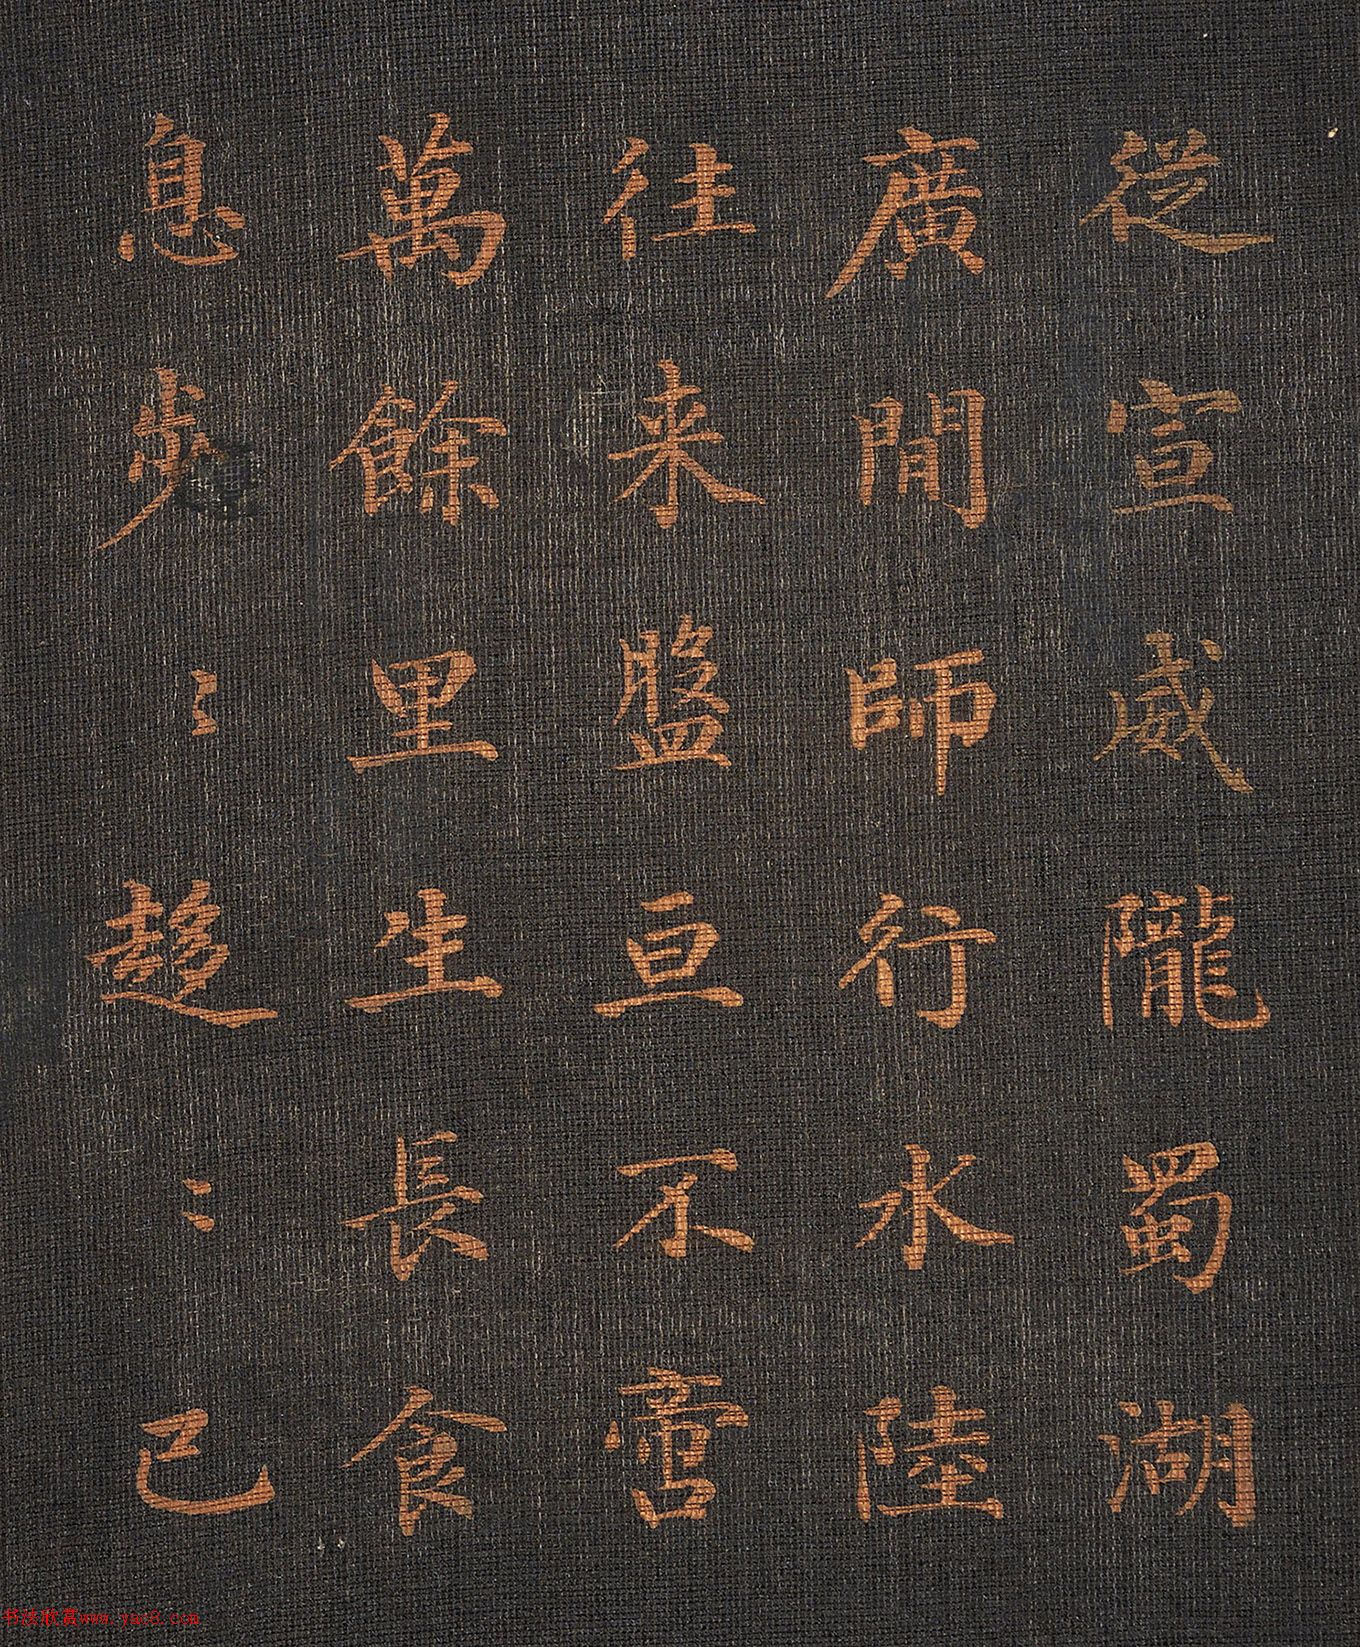 從宣威隴蜀湖
廣間師行水陸
往来盤亘不啻
萬餘里生長食
息步〻趍〻已
书法欣赏www.yac8.com